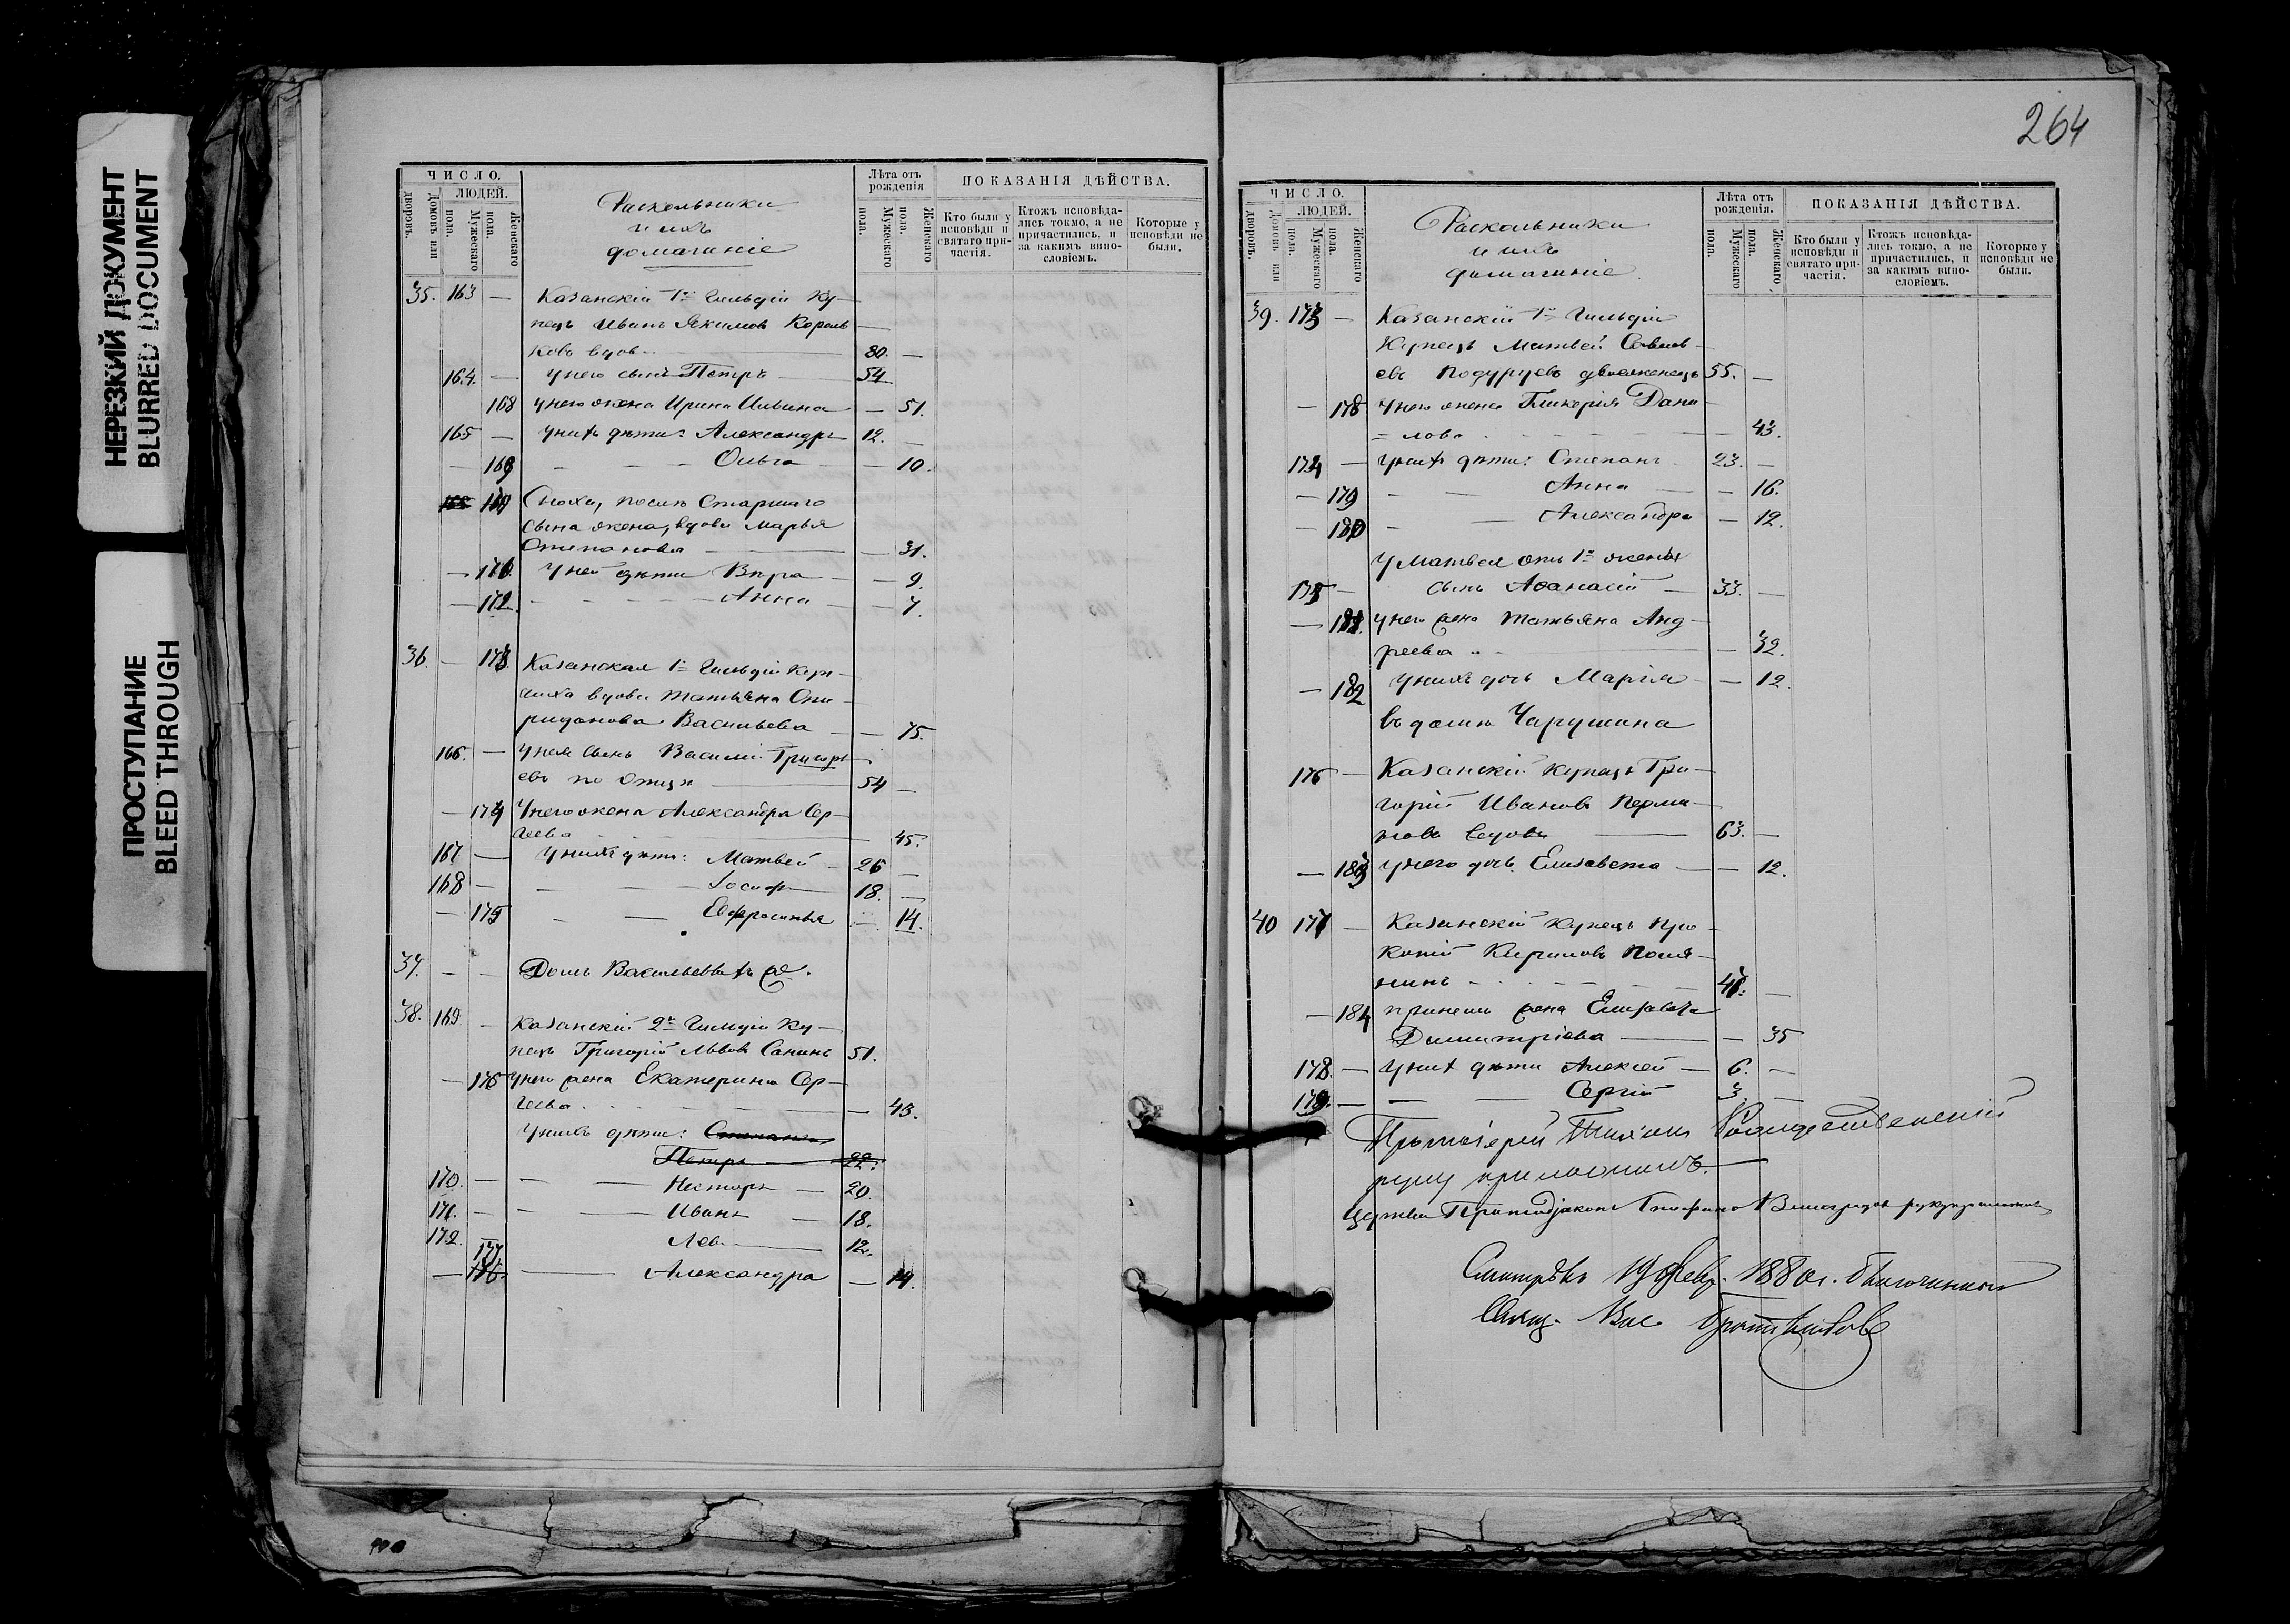 НЕРЕЗКИЙ ДОКУМЕНТ
BLURRED DOCUMENT
ПРОСТУПАНИЕ
BLEED THROUGH
ЧИСЛО.
ЛЮДЕЙ.
Домовъ или дворовъ.
Мужескаго пола.
Женскаго пола.
Раскольники
и ихъ
домашніе
Лѣта отъ рожденія
Мужескаго пола.
Женскаго пола.
ПОКАЗАНІЯ ДѢЙСТВА.
Кто были у исповѣди и святаго причастія.
Ктожъ исповѣдались токмо, а не причастились, и за какимъ винословіемъ.
Которые у исповѣди не были.
35. 163 — Казанскій 1й Гильдіи Ку-
пецъ Иванъ Якимов Король
ковъ вдов 80. —
164. — У него сынъ Петръ 54
168 У него жена Ирина — 51.
165 — У нихъ дѣти: Александръ 12. —
— 169 — Ольга — 10.
Сноха, послѣ Старшаго
сына жена, вдова Марья
Степанова — 31.
— У ней дѣти Вѣра — 9.
— 172. Анна — 7.
36. — 173. Казанская 1й Гильдіи Куп-
чиха вдова Татьяна Спи-
ридонова Васильева — 75.
166. — У нея сынъ Василій Григорь
евъ по Отцѣ 54 —
— 174 У него жена Александра Сер-
геева 45.
167 — У нихъ дѣти: Матвей 26 —
168 — Іосифъ 18. —
— 175 Евфросинья — 14.
37. — — Домъ Васильевыхъ же.
38. 169. — Казанскій 2й Гильдіи Ку-
пецъ Григорій Львовъ Санинъ 51.
— 176 У него жена Екатерина Сер-
геева — 43.
У нихъ дѣти: Степанъ
Петръ 22.
170. — Несторъ 20.
171. — Иванъ 18.
172. Левъ 12.
177.
— 176 Александра — 14.
264
ЧИСЛО.
ЛЮДЕЙ.
Домовъ или дворовъ.
Мужескаго пола.
Женскаго пола.
Раскольники
и ихъ
домашніе.
Лѣта отъ рожденія.
Мужескаго пола.
Женскаго пола.
ПОКАЗАНІЯ ДѢЙСТВА.
Кто были у исповѣди и святаго причастія.
Ктожъ исповѣдались токмо, а не причастились, и за какимъ винословіемъ.
Которые у исповѣди не были.
39. 173 — Казанскій 1й Гильдіи
Купецъ Матвей Савель
евъ Подуруевъ двоеженецъ 55. —
— 178 У него жена Гликерія Дани
= лова — 43.
174 — У нихъ дѣти: Степанъ 23. —
— 179 Анна — 16.
— 180 Александра — 12.
У Матвея отъ 1й жены
175 — сынъ Аѳанасій 33. —
— 181. У него жена Татьяна Анд-
реева — 32.
— 182 У нихъ дочь Марія — 12.
въ домѣ Чарушина
176 — Казанскій купецъ Гри-
горій Ивановъ Перми-
новъ вдовъ 63. —
— 183 У него дочь Елизавета — 12.
40 177 — Казанскій купецъ Про-
копій Кириловъ Поля-
нинъ —
— 184 при немъ жена Елизавета
Димитріева — 35
178. — У нихъ дѣти Алексей 6. —
179. — Сергій 3 —
Протоіерей Тихонъ Рождественскій
руку приложилъ.
Церкви Протодіаконъ Виноградовъ руку приложилъ
Смотрѣлъ 19 Февр. 1880 г. благочинный
Свящ. Вас.